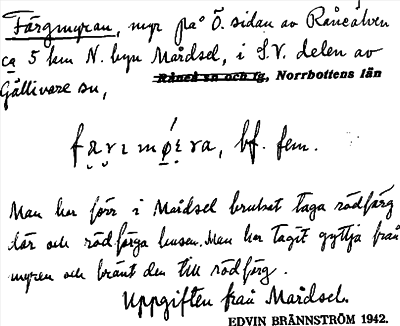 Färgmyran, myr på Ö. sidan av Råneälven
ca 5 km N. byn Mårdsel, i S.V. delen av
Råneå sn och tg, Norrbottens län
Gällivare sn,
bf. fem.
Man har förr i Mårdsel brukat taga rödfärg
där och rödfärga husen. Man har tagit gyttja från
myren och bränt den till rödfärg.
Uppgiften från Mårdsel.
EDVIN BRÄNNSTRÖM 1942.